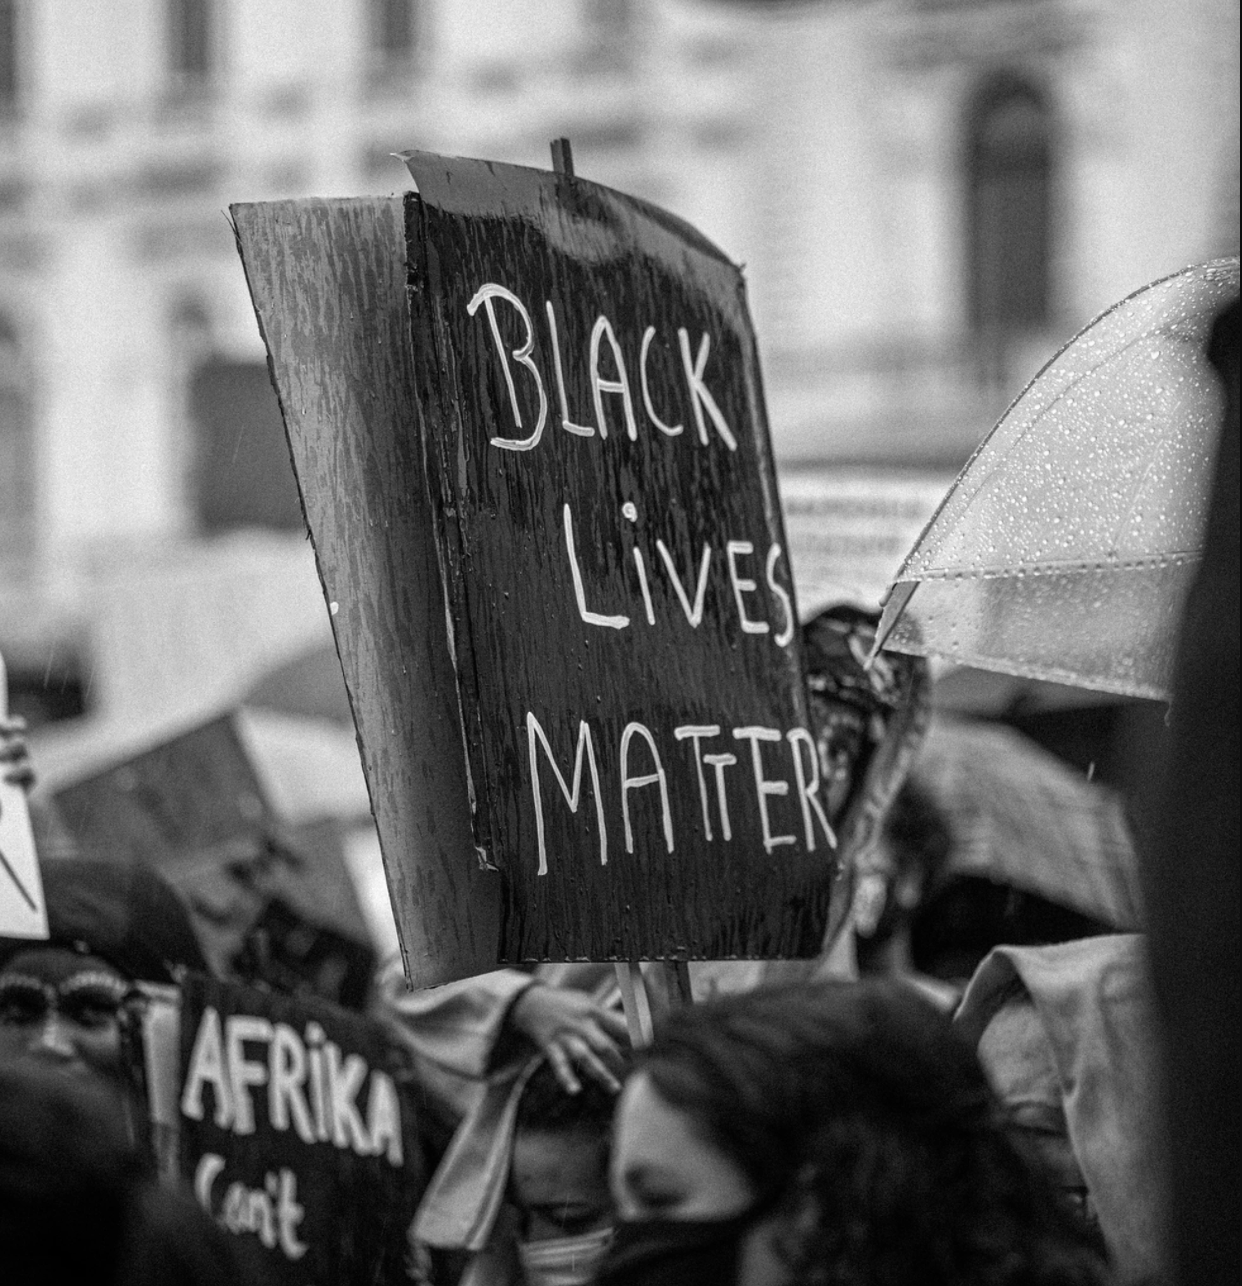 BLACK
LiVES
MATTER
AFRiKA
Can't